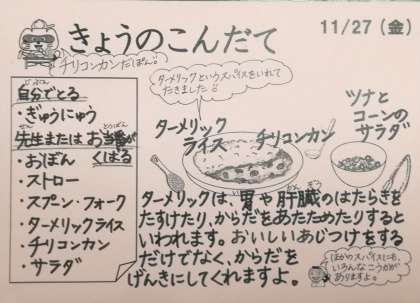 きょうのこんだて
11/27（金）
チリコンカンだぽん♪
自分でとる
じぶん
・ぎゅうにゅう
先生または お当番が
せんせい
とうばん
くばる
・おぼん
・ストロー
・スプーン・フォーク
・ターメリックライス
・チリコンカン
・サラダ
ターメリックというスパイスをいれて
たきました♪
ターメリック
ライス
チリコンカン
ツナと
コーンの
サラダ
ターメリックは、胃や肝臓のはたらきを
い
かんぞう
たすけたり、からだをあたためたりすると
いわれます。おいしいあじつけをする
だけでなく、からだを
げんきにしてくれますよ。
ほかのスパイスにも、
いろんなこうかが
ありますよ。